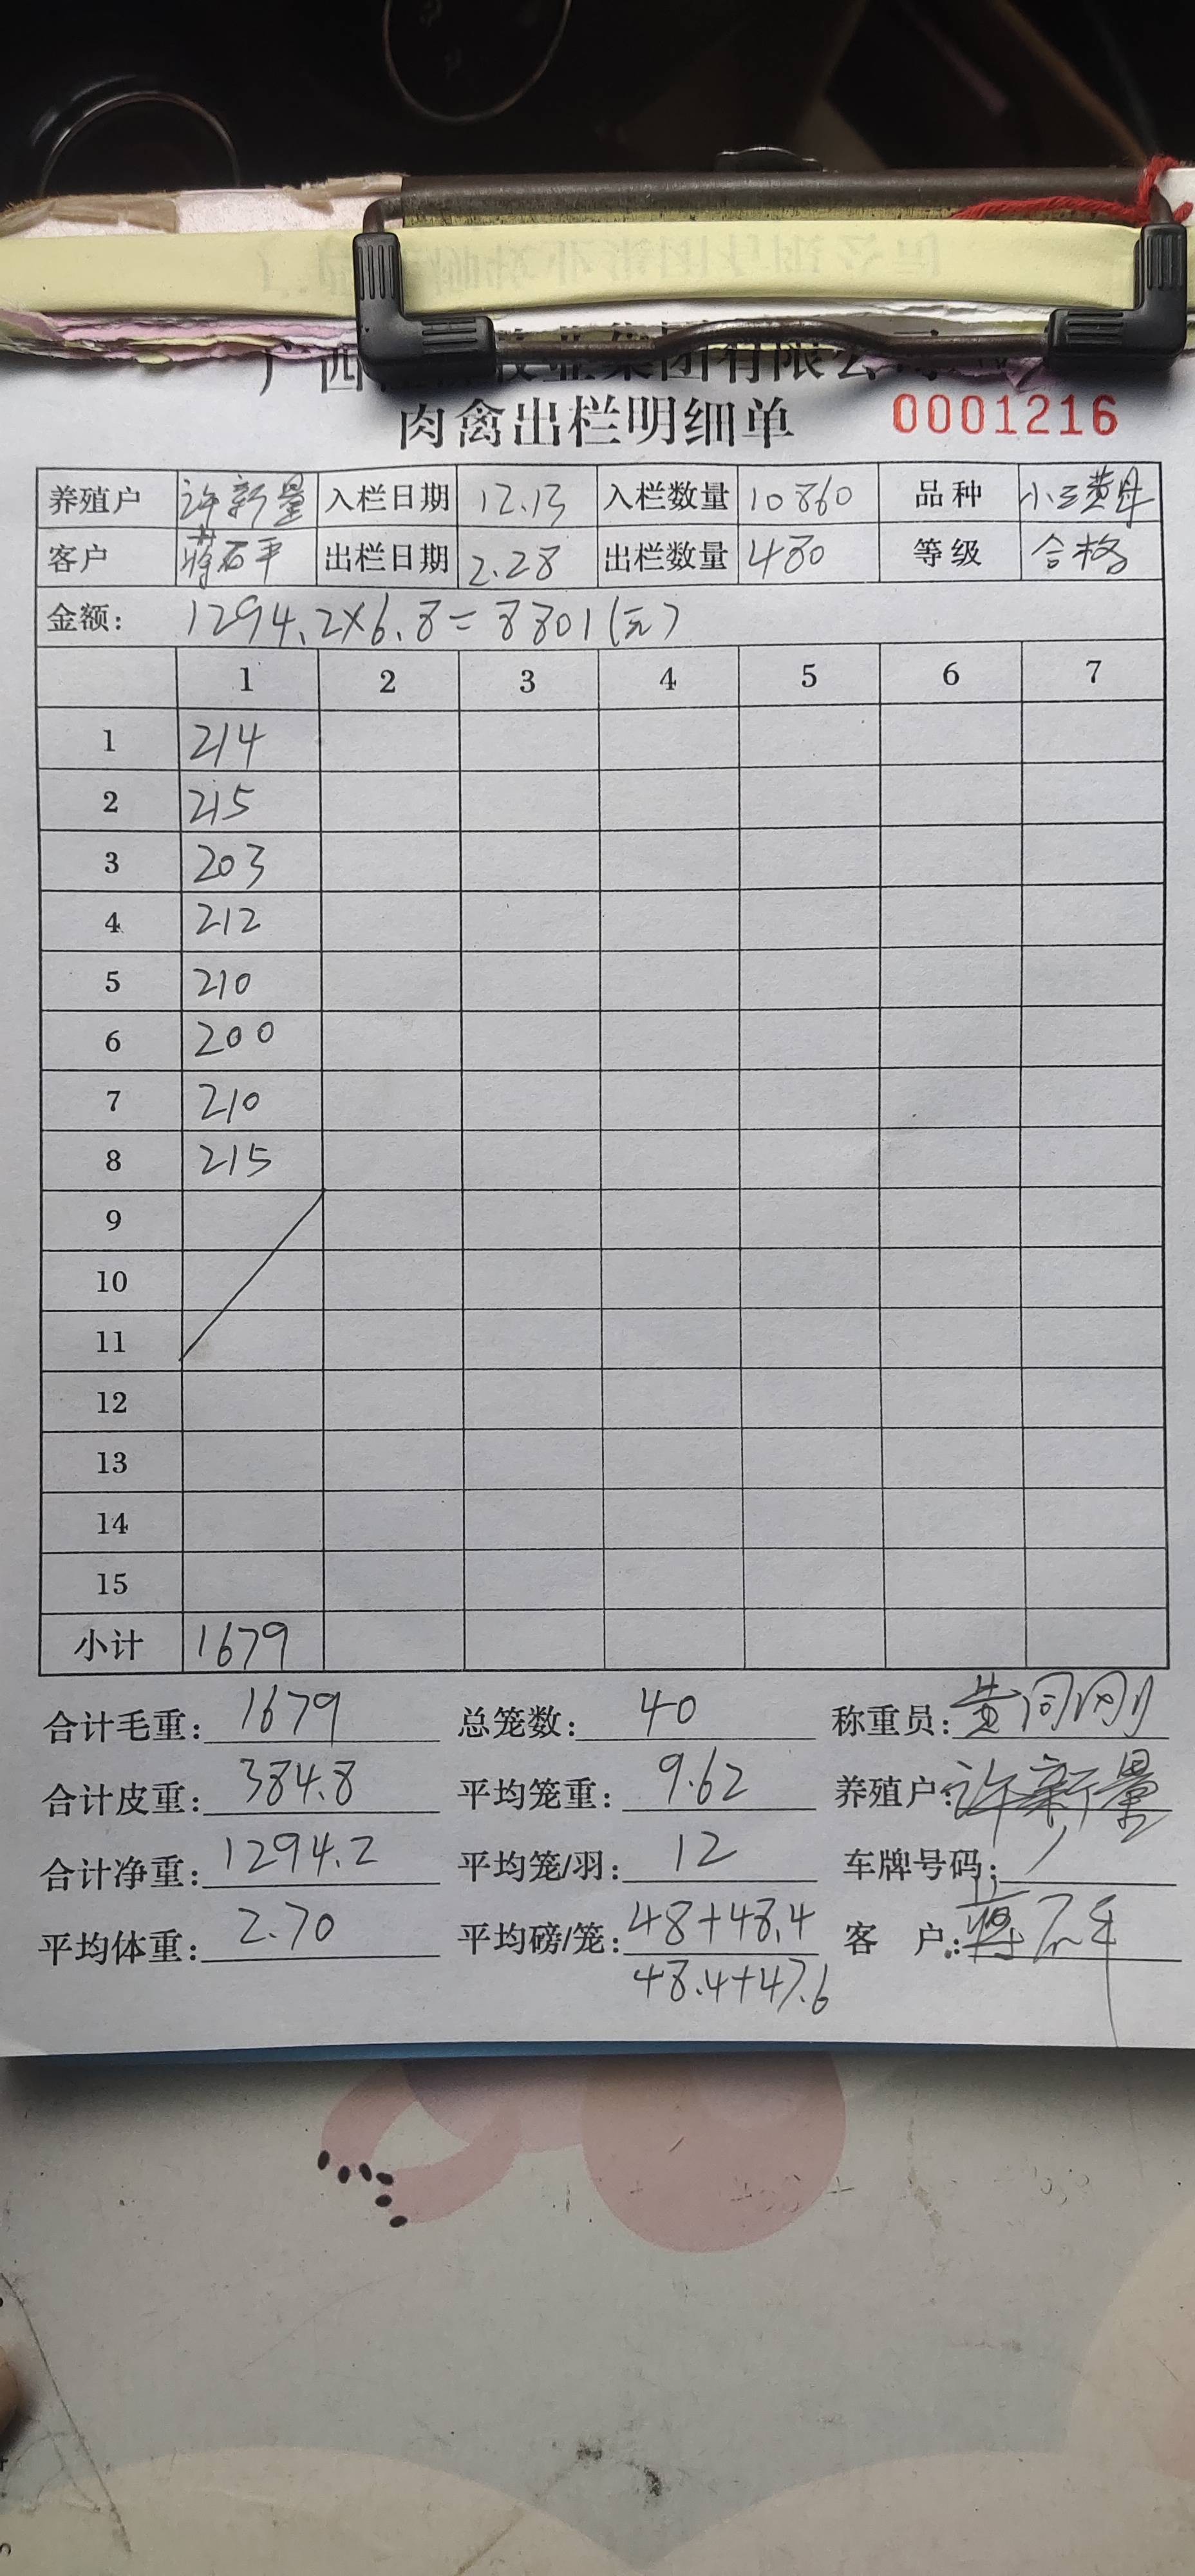 广西 牧业集团有限公司
肉禽出栏明细单 0001216
养殖户 许新量 入栏日期 12.13 入栏数量 10860 品种 小三黄母
客户 蒋石平 出栏日期 2.28 出栏数量 480 等级 合格
金额: 1294.2×6.8=8801(元)
1 2 3 4 5 6 7
1 214
2 215
3 203
4 212
5 210
6 200
7 210
8 215
9
10
11
12
13
14
15
小计 1679
合计毛重: 1679 总笼数: 40 称重员: 黄 刚
合计皮重: 384.8 平均笼重: 9.62 养殖户: 许新量
合计净重: 1294.2 平均笼/羽: 12 车牌号码: /
平均体重: 2.70 平均磅/笼: 48+48.4 客 户: 蒋石平
48.4+47.6